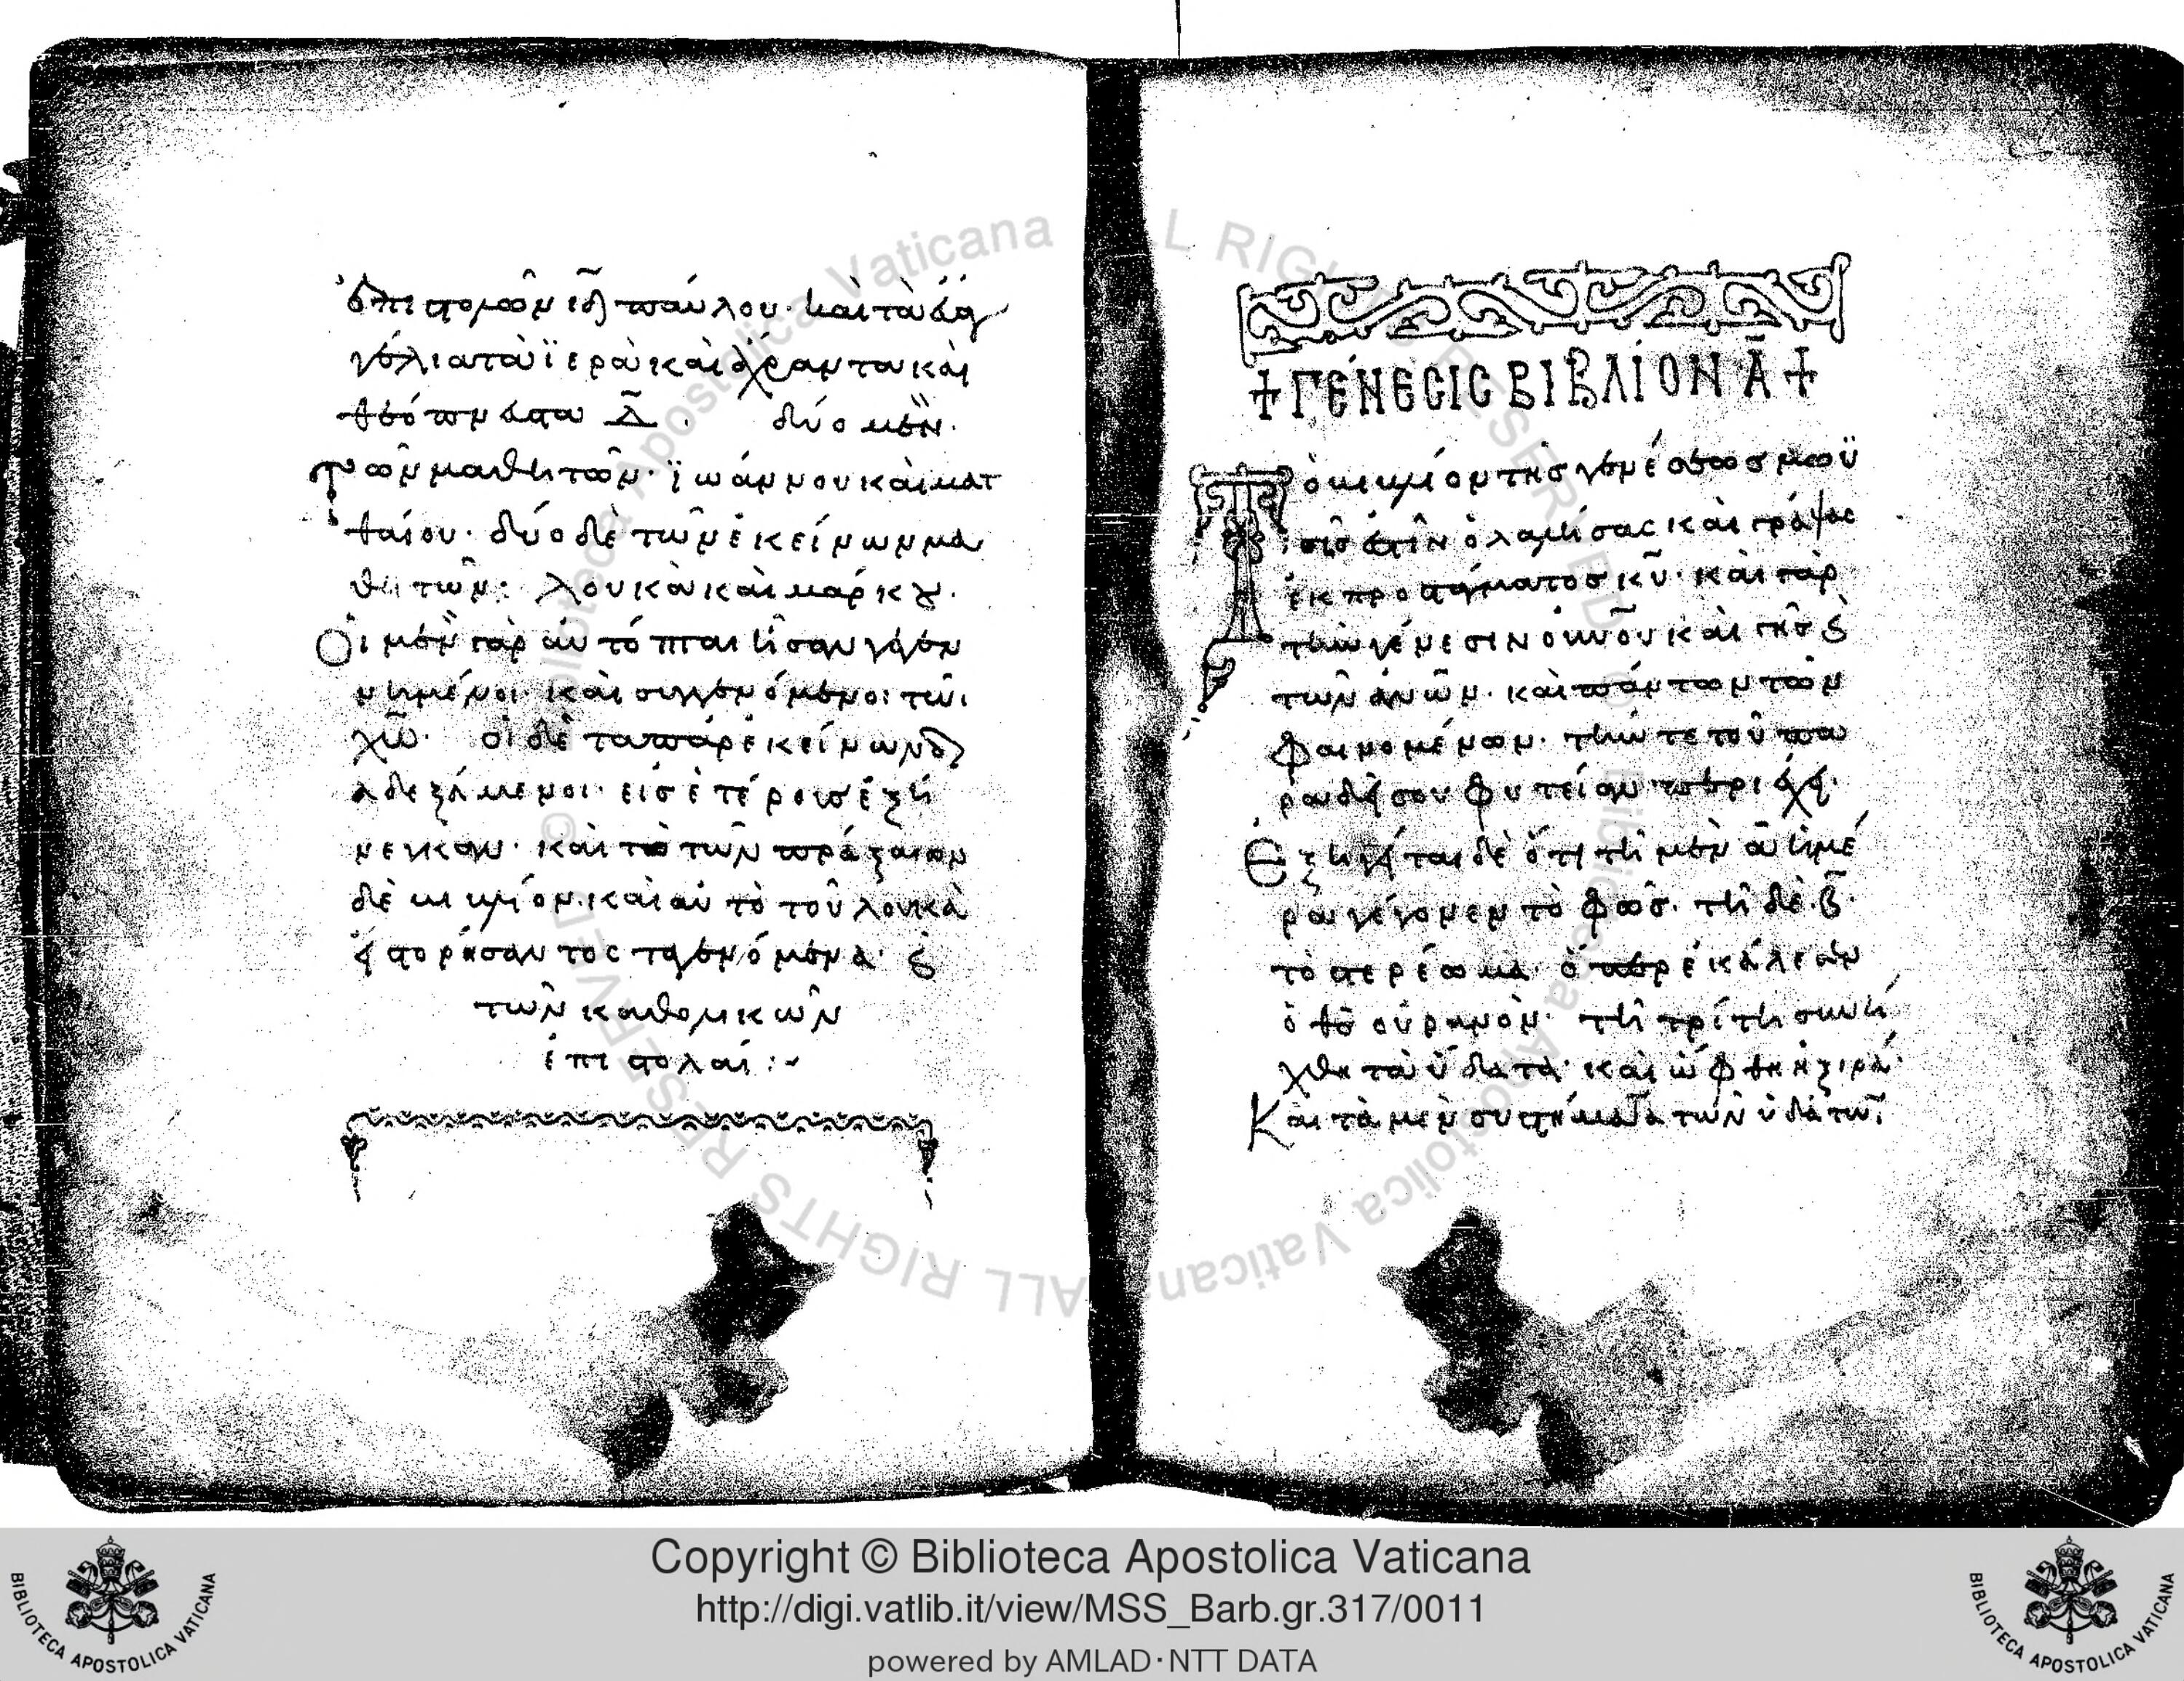 ἐπιστολῶν ιδ παύλου· καὶ τὰ εὐα
γγέλια τὰ ϊερὰ καὶ ἄχραντα καὶ
θεόπνευστα δ̄. δύο μὲν.
τῶν μαθητῶν· ϊωάννου καὶ ματ
θαίου· δύο δὲ τῶν ἐκείνων μα
θητῶν: λουκὰ καὶ μάρκου.
Οἱ μὲν γὰρ αὐτόπται ἦσαν γεγεν
νημένοι· καὶ συγγενόμενοι τῶι
χω̄· οἱ δὲ τὰ παρ ἐκείνων
δεξάμενοι· εἰσ ἑτέρουσ ἐξή
νεγκαν· καὶ τὸ τῶν πράξεων
δὲ καὶ αὐτὸ τοῦ λουκὰ
ἱστορήσαντος τὰ γενόμενα·
τῶν καθολικῶν
ἐπιστολαί :~
+ ΓΕΝΕCΙC ΒΙΒΛΙΟΝ Ᾱ +
Τὸ βιβλίον τῆσ γενέσεωσ μωϋ
σῆσ ἐστὶν ὁ λαλήσας καὶ γράψας
ἐκ προστάγματοσ κῡ· καὶ γὰρ
τὴν γένεσιν οὐνοῦ καὶ γῆσ
τῶν ἀνω̄ν· καὶ πάντων τῶν
φαινομένων· τήν τε τοῦ πα
ραδείσου φυτείαν περιέχει·
Ἐξηγεῖται δὲ ὅτι τῆ μὲν ᾱ ἡμέ
ρα γέγονεν τὸ φῶσ· τῆ δὲ β̄·
τὸ στερέωμα· ὅπερ ἐκάλεσεν
ὁ θσ̄ οὐρανὸν· τῆ τρίτη συνή
χθη τὰ ὕδατα· καὶ ὤφθη ἡ ξιρά·
Καὶ τὰ μὲν συστήματα τῶν ὑδάτων
Copyright © Biblioteca Apostolica Vaticana
http://digi.vatlib.it/view/MSS_Barb.gr.317/0011
powered by AMLAD·NTT DATA
BIBLIOTECA APOSTOLICA VATICANA
BIBLIOTECA APOSTOLICA VATICANA